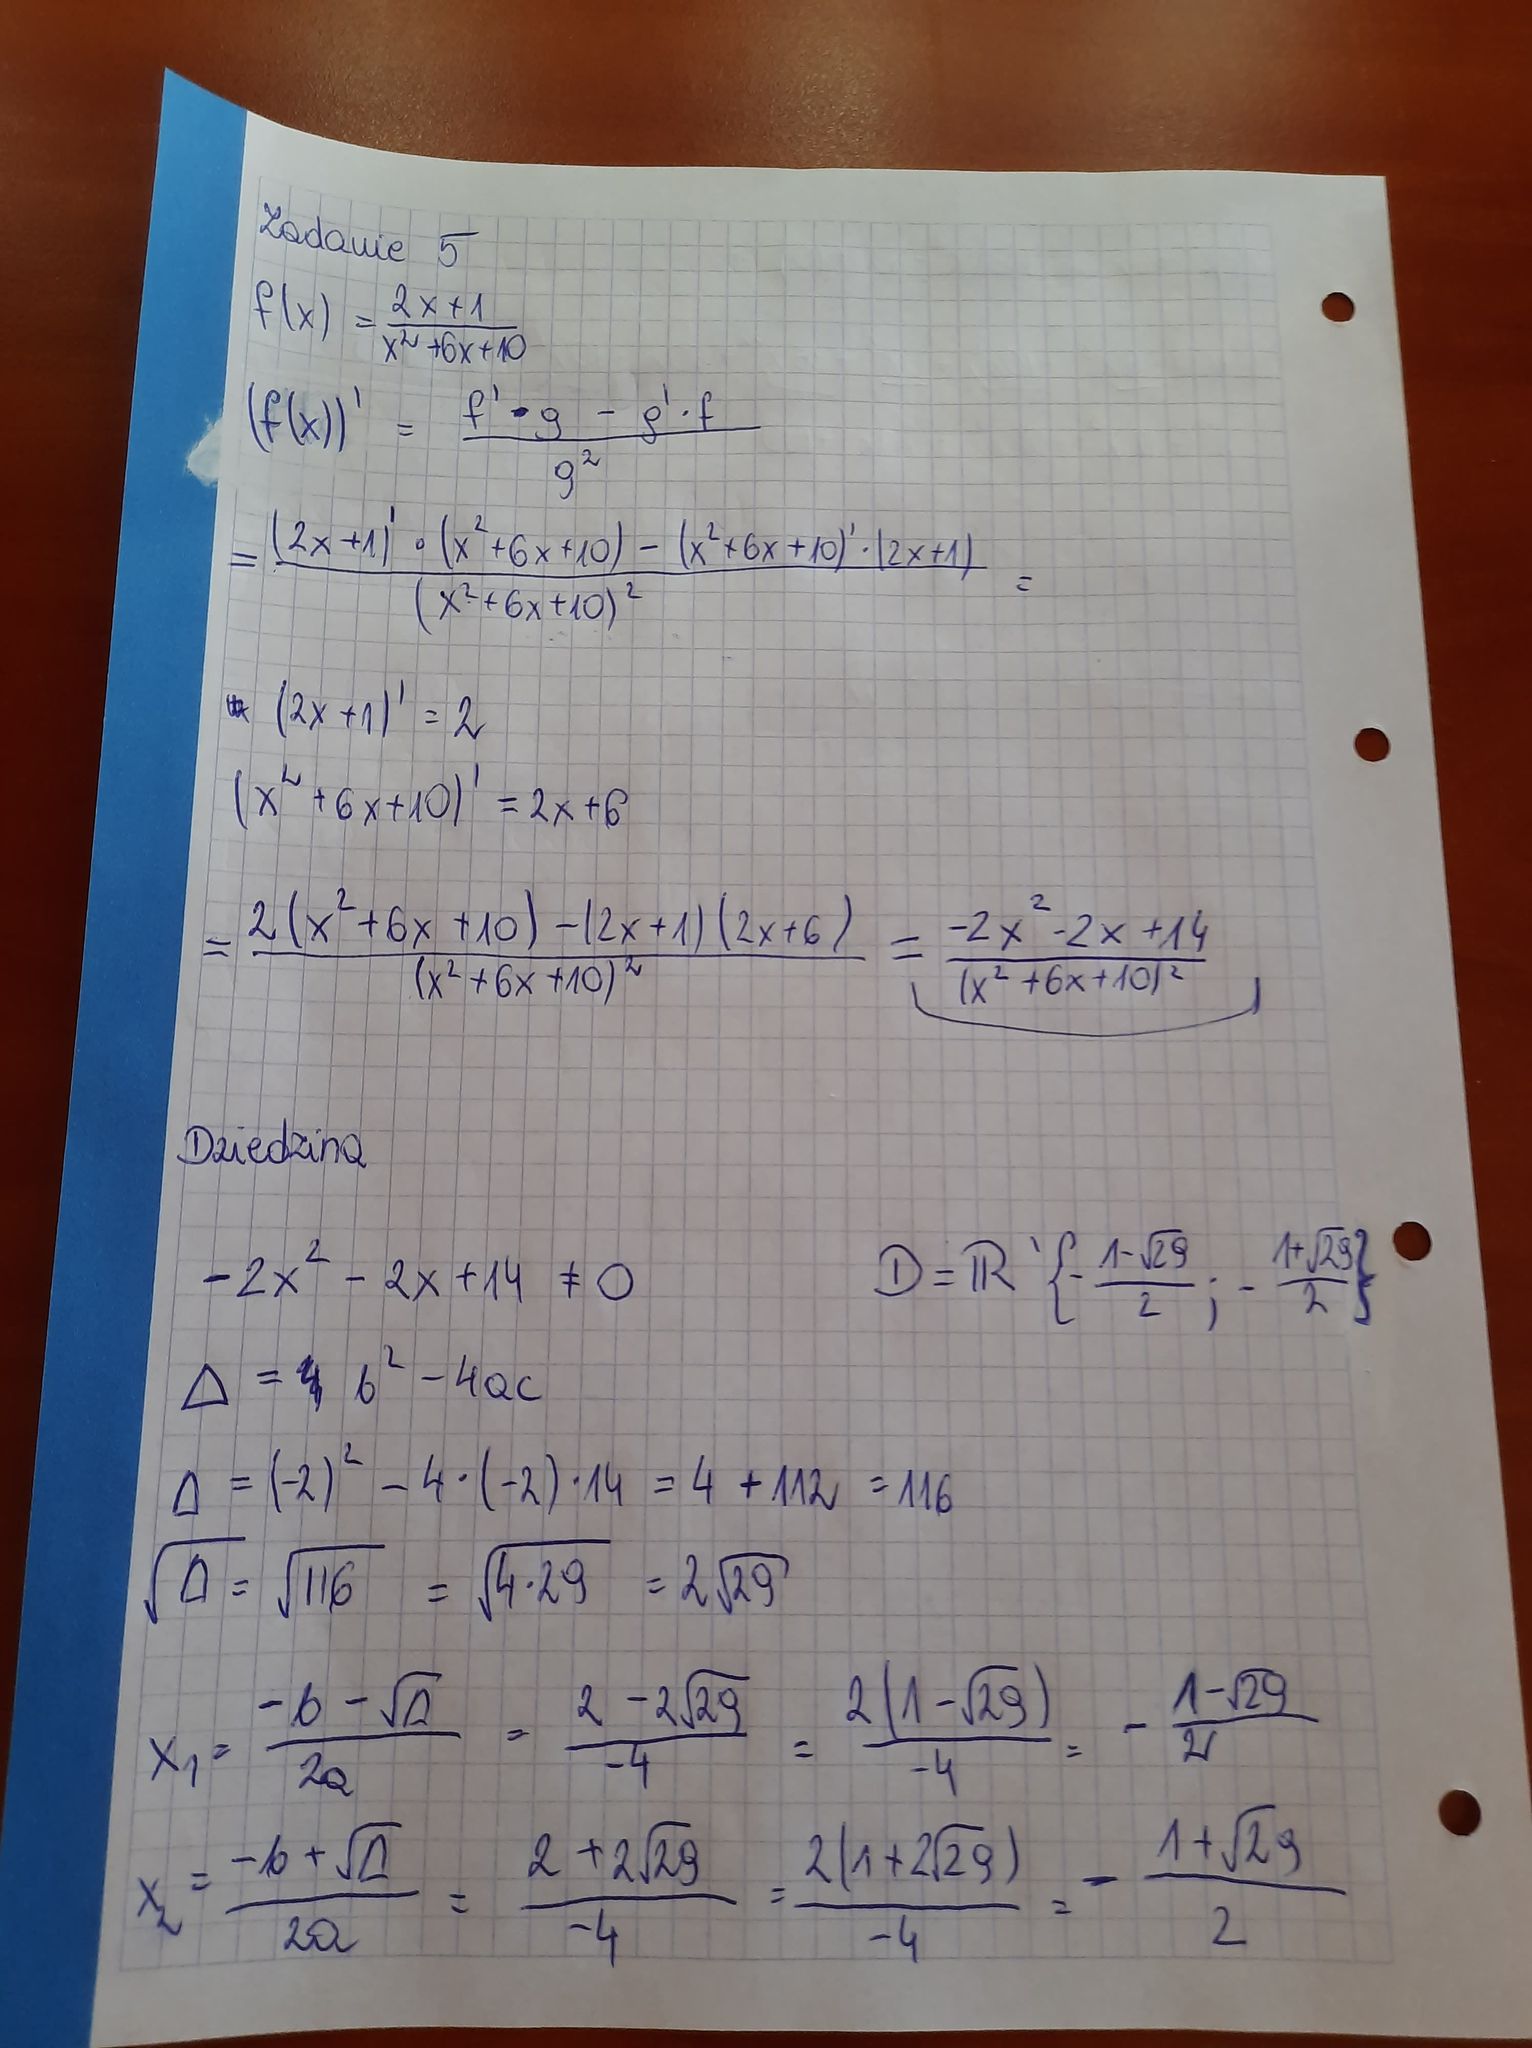 Zadanie 5
f(x) = \frac{2x+1}{x^2+6x+10}
(f(x))' = \frac{f' \cdot g - g' \cdot f}{g^2}
= \frac{(2x+1)' \cdot (x^2+6x+10) - (x^2+6x+10)' \cdot (2x+1)}{(x^2+6x+10)^2} =
(2x+1)' = 2
(x^2+6x+10)' = 2x+6
= \frac{2(x^2+6x+10) - (2x+1)(2x+6)}{(x^2+6x+10)^2} = \frac{-2x^2-2x+14}{(x^2+6x+10)^2}
Dziedzina
-2x^2 - 2x + 14 ≠ 0
D = ℝ \ {-\frac{1-\sqrt{29}}{2}; -\frac{1+\sqrt{29}}{2}}
Δ = b^2 - 4ac
Δ = (-2)^2 - 4 \cdot (-2) \cdot 14 = 4 + 112 = 116
\sqrt{Δ} = \sqrt{116} = \sqrt{4 \cdot 29} = 2\sqrt{29}
x_1 = \frac{-b - \sqrt{Δ}}{2a} = \frac{2 - 2\sqrt{29}}{-4} = \frac{2(1-\sqrt{29})}{-4} = -\frac{1-\sqrt{29}}{2}
x_2 = \frac{-b + \sqrt{Δ}}{2a} = \frac{2 + 2\sqrt{29}}{-4} = \frac{2(1+2\sqrt{29})}{-4} = -\frac{1+\sqrt{29}}{2}